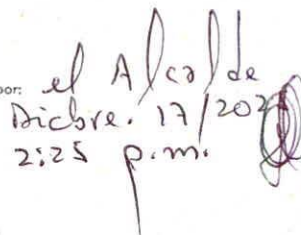 por: el Alcalde
Dicbre. 17/202
2:25 p.m.